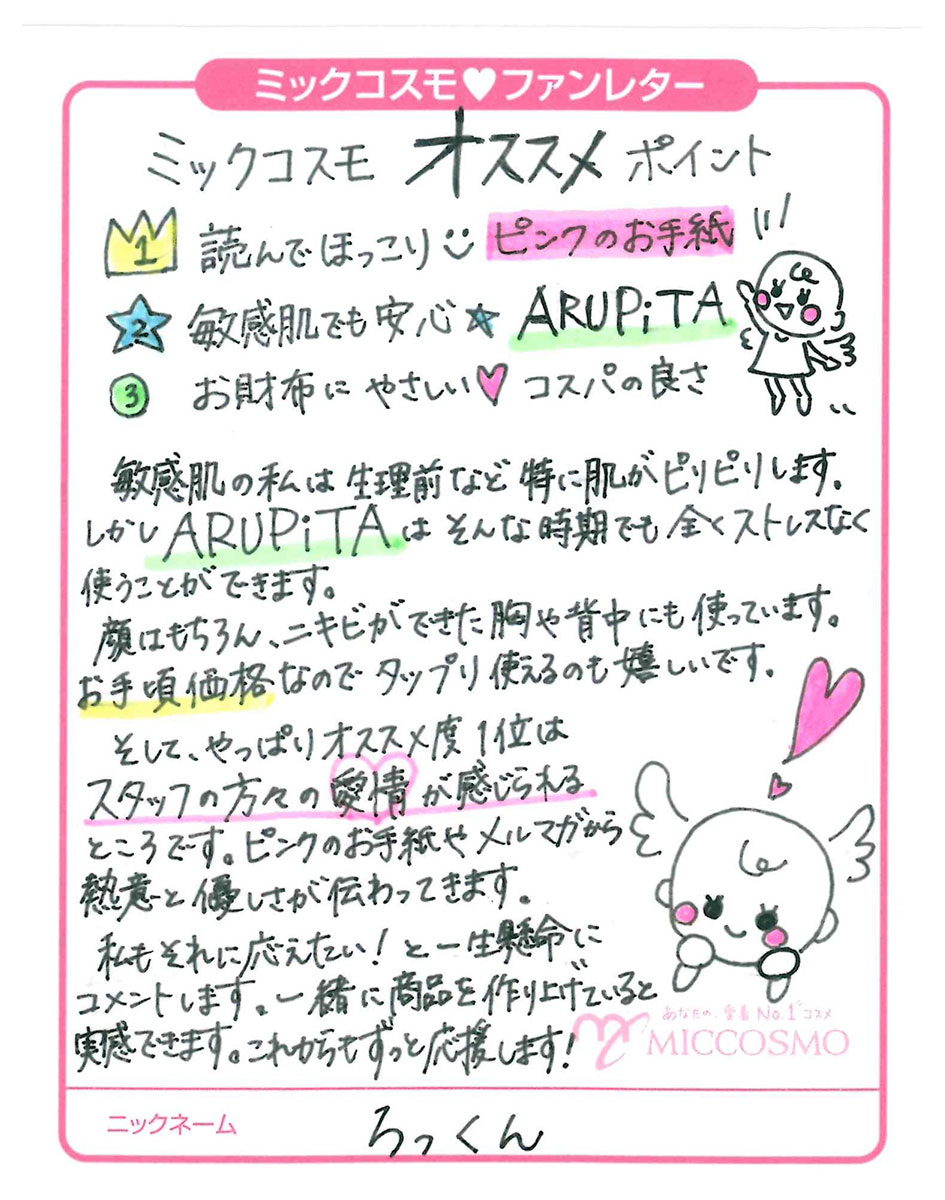 ミックコスモ♥ファンレター
ミックコスモ オススメ ポイント
1 読んでほっこり ピンクのお手紙
2 敏感肌でも安心☆ ARUPiTA
3 お財布にやさしい♥ コスパの良さ
敏感肌の私は生理前など特に肌がピリピリします。
しかしARUPiTAはそんな時期でも全くストレスなく
使うことができます。
顔はもちろん、ニキビができた胸や背中にも使っています。
お手頃価格なのでタップリ使えるのも嬉しいです。
そして、やっぱりオススメ度1位は
スタッフの方々の愛情が感じられる
ところです。ピンクのお手紙やメルマガから
熱意と優しさが伝わってきます。
私もそれに応えたい!と一生懸命に
コメントします。一緒に商品を作り上げていると
実感できます。これからもずっと応援します!
あなたの、愛着No.1コスメ
MICCOSMO
ニックネーム
ろっくん